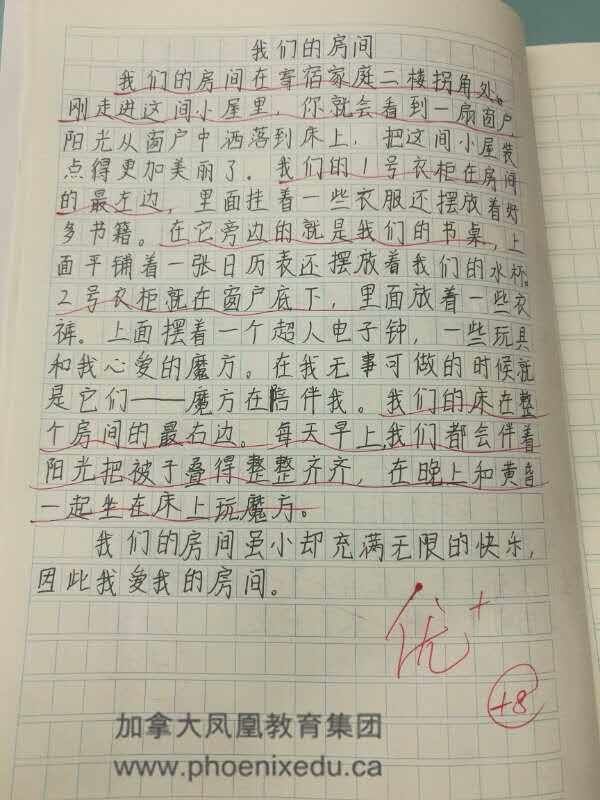 我们的房间
我们的房间在寄宿家庭二楼拐角处。
刚走进这间小屋里，你就会看到一扇窗户，
阳光从窗户中洒落到床上，把这间小屋装
点得更加美丽了。我们的1号衣柜在房间
的最左边，里面挂着一些衣服还摆放着好
多书籍。在它旁边的就是我们的书桌，上
面平铺着一张日历表还摆放着我们的水杯。
2号衣柜就在窗户底下，里面放着一些衣
裤。上面摆着一个超人电子钟，一些玩具
和我心爱的魔方。在我无事可做的时候就
是它们——魔方在陪伴我。我们的床在整
个房间的最右边。每天早上，我们都会伴着
阳光把被子叠得整整齐齐，在晚上和黄昏
一起坐在床上玩魔方。
我们的房间虽小却充满无限的快乐，
因此我爱我的房间。
优+
+8
加拿大凤凰教育集团
www.phoenixedu.ca